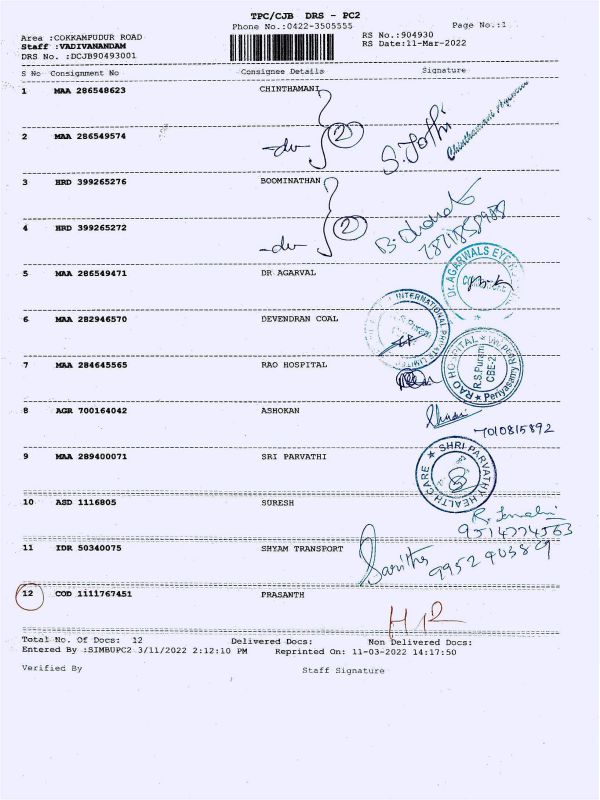 TPC/CJB DRS - PC2
Phone No.:0422-3505555 Page No.:1
Area :COKKAMPUDUR ROAD RS No.:904930
Staff :VADIVANANDAM RS Date:11-Mar-2022
DRS No. :DCJB90493001
S No Consignment No Consignee Details Signature
1 MAA 286548623 CHINTHAMANI
2 MAA 286549574 -do- 2 S. Jothi
3 HRD 399265276 BOOMINATHAN
4 HRD 399265272 -do- 2
5 MAA 286549471 DR AGARVAL Dr. AGARWALS EYE
6 MAA 282946570 DEVENDRAN COAL INTERNATIONAL PRIVATE LIMITED
7 MAA 284645565 RAO HOSPITAL RAO HOSPITAL R.S.Puram CBE-2 Periyasamy Road
8 AGR 700164042 ASHOKAN 7010815892
9 MAA 289400071 SRI PARVATHI SHRI PARVATHY HEALTH CARE
10 ASD 1116805 SURESH
9514774563
11 IDR 50340075 SHYAM TRANSPORT
12 COD 1111767451 PRASANTH
Total No. Of Docs: 12 Delivered Docs: Non Delivered Docs:
Entered By :SIMBUPC2 3/11/2022 2:12:10 PM Reprinted On: 11-03-2022 14:17:50
Verified By Staff Signature